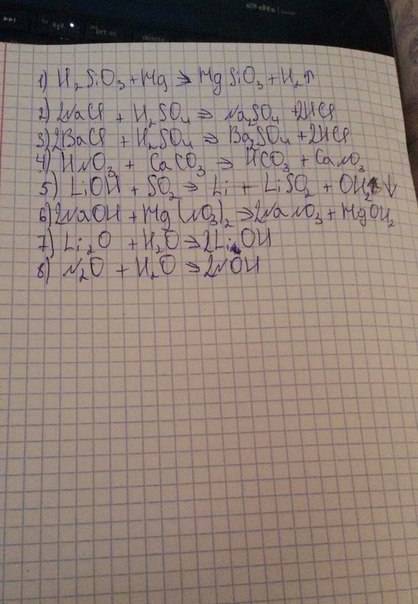 1) H₂SiO₃ + Mg ⇒ MgSiO₃ + H₂↑
2) 2NaCl + H₂SO₄ ⇒ Na₂SO₄ + 2HCl
3) 2BaCl + H₂SO₄ ⇒ Ba₂SO₄ + 2HCl
4) HNO₃ + CaCO₃ ⇒ HCO₃ + CaNO₃
5) LiOH + SO₂ ⇒ Li + LiSO₂ + OH₂↓
6) 2NaOH + Mg(NO₃)₂ ⇒ 2NaNO₃ + MgOH₂
7) Li₂O + H₂O ⇒ 2LiOH
8) N₂O + H₂O ⇒ 2NOH